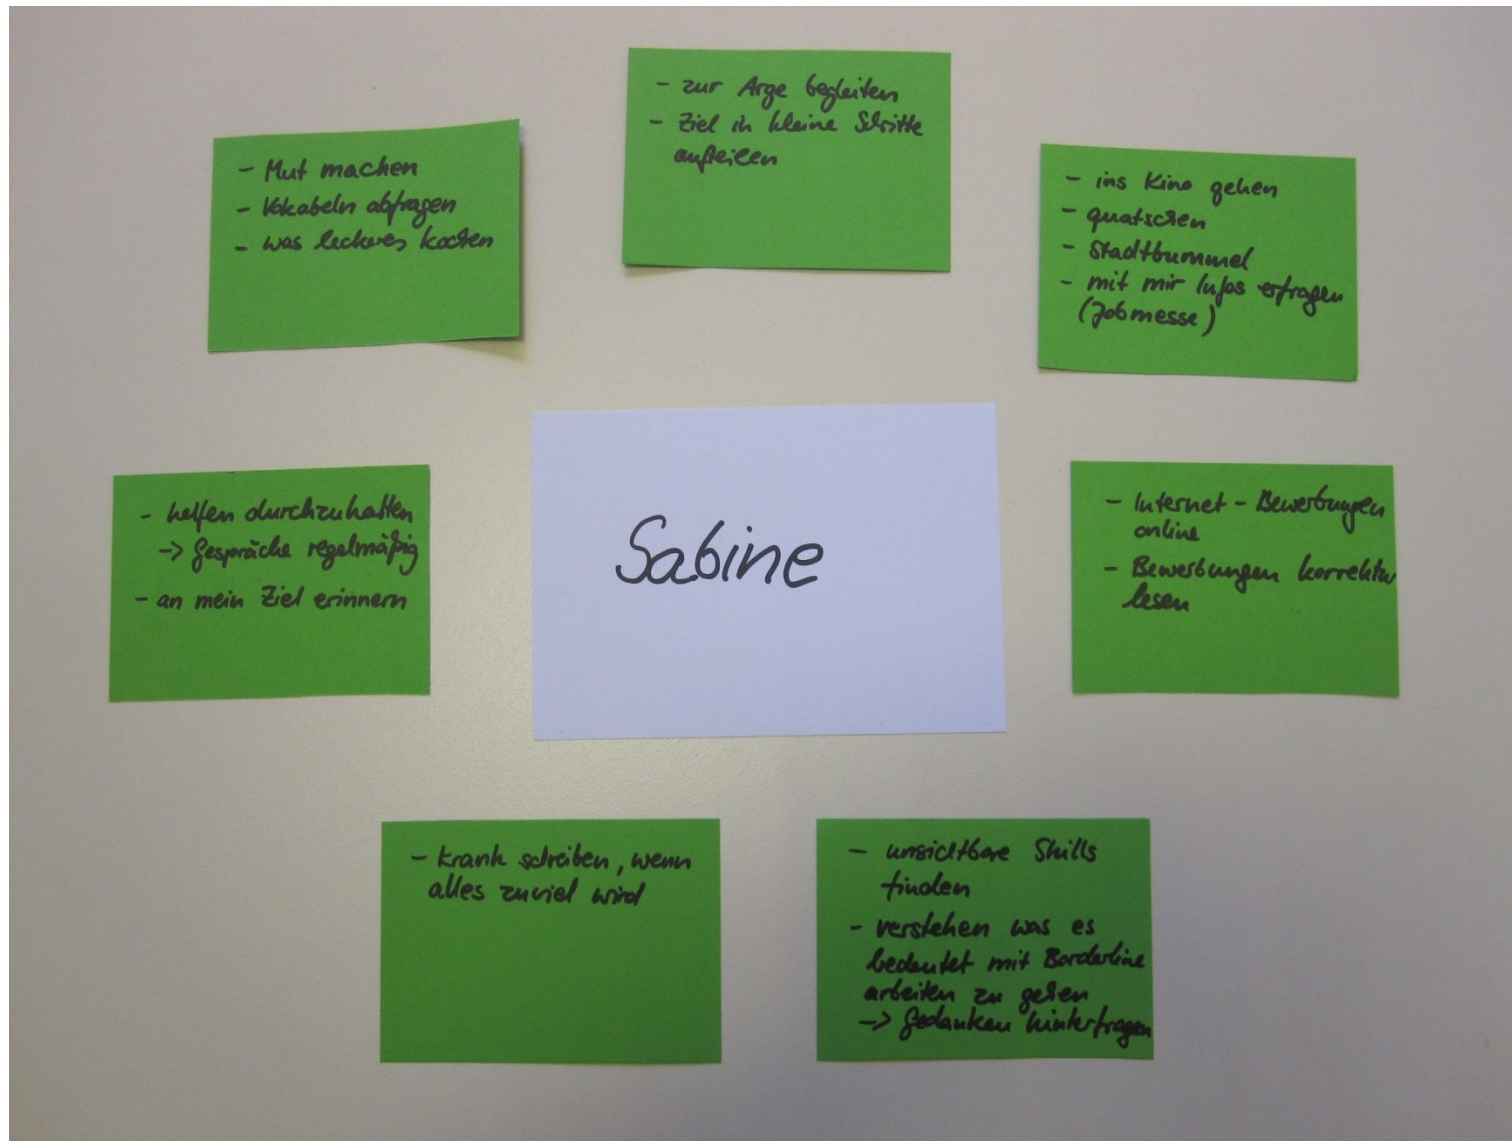 - Mut machen
- Vokabeln abfragen
- was leckeres kochen
- zur Arge begleiten
- Ziel in kleine Schritte
aufteilen
- ins Kino gehen
- quatschen
- Stadtbummel
- mit mir Infos erfragen
(Jobmesse)
- helfen durchzuhalten
-> Gespräche regelmäßig
- an mein Ziel erinnern
Sabine
- Internet - Bewerbungen
online
- Bewerbungen korrektur
lesen
- krank schreiben, wenn
alles zuviel wird
- unsichtbare Skills
finden
- verstehen was es
bedeutet mit Borderline
arbeiten zu gehen
-> Gedanken hinterfragen